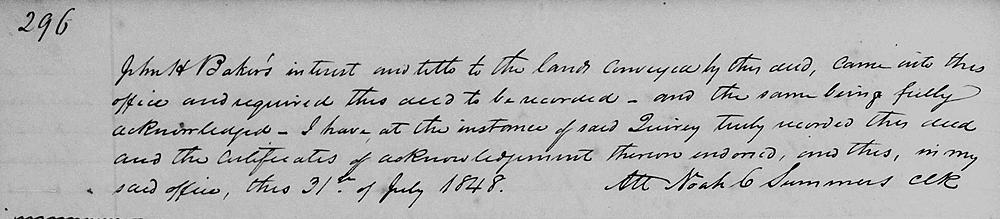 296
John H Baker's interest and title to the lands conveyed by this deed, came into this
office and required this deed to be recorded – and the same being fully
acknowledged – I have, at the instance of said Quirey truly recorded this deed
and the certificates of acknowledgement thereon endorsed, and this, in my
said office, this 31st of July 1848. Att Noah C Summers clk